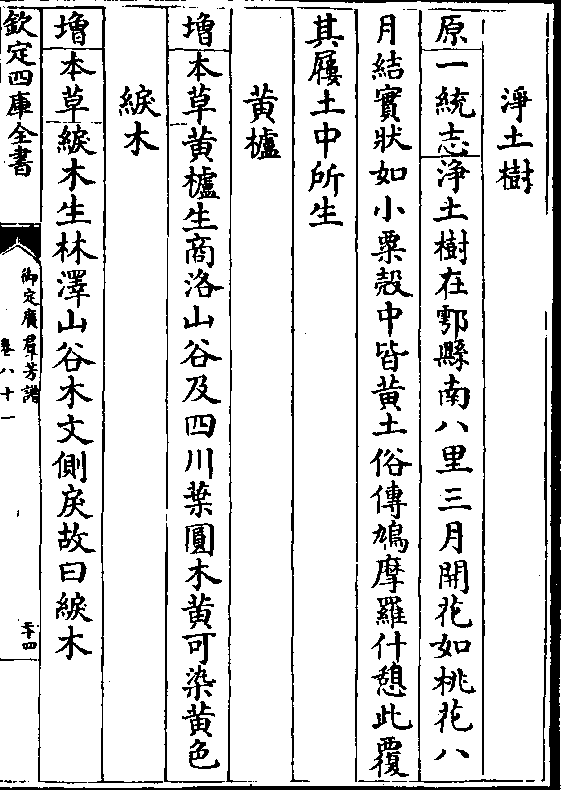 淨土樹
原一統志淨土樹在鄠縣南八里三月開花如桃花八
月結實狀如小粟殼中皆黄土俗傳鳩摩羅什憩此覆
其屨土中所生
黄櫨
增本草黄櫨生商洛山谷及四川葉圓木黄可染黄色
綟木
增本草綟木生林澤山谷木文側戾故曰綟木
欽定四庫全書
御定廣羣芳譜
卷八十一
二十四